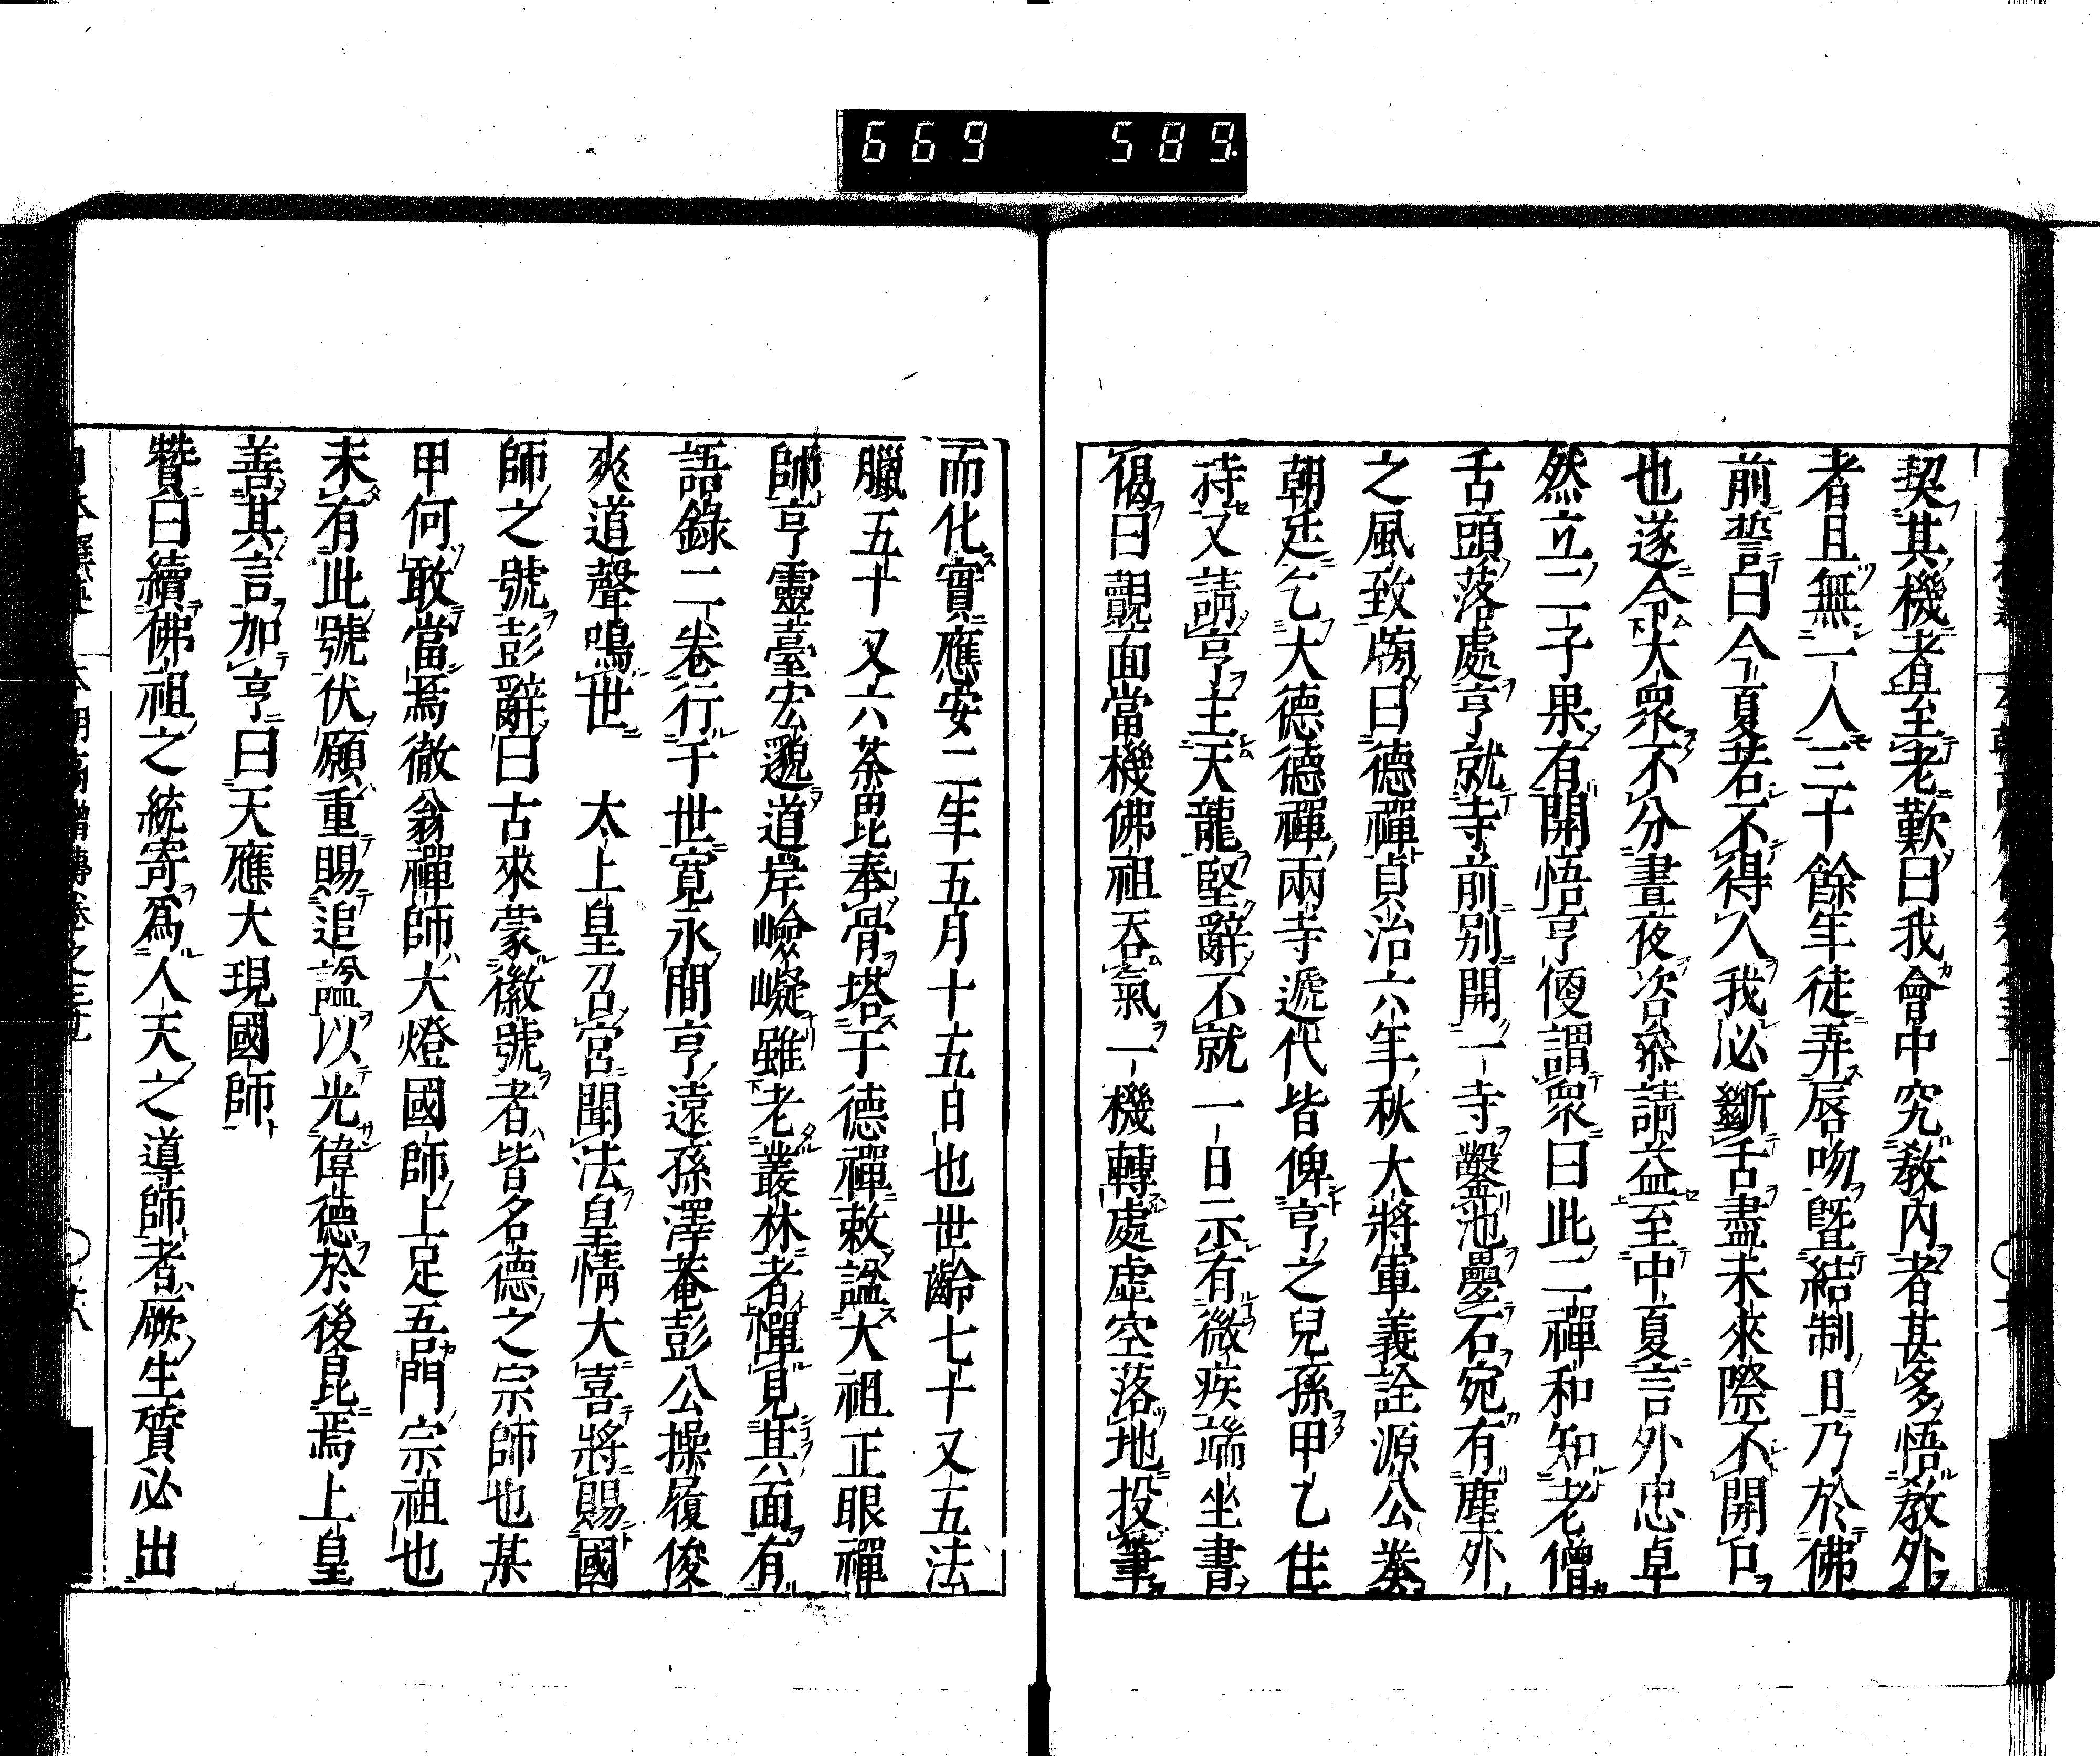 669 589
契其機者至老歎曰我會中究教內者甚多悟教外
者且無一人三十餘年徒弄唇吻曁結制日乃於佛
前誓曰今夏若不得入我必斷舌盡未來際不開口
也遂令大眾不分晝夜咨參請益至中夏言外忠卓
然立二子果有開悟亨便謂眾曰此二禪和知老僧
舌頭落處亨就寺前別開一寺鑿池疊石宛有塵外
之風致牓曰德禪貞治六年秋大將軍義詮源公奏
朝廷乞大德德禪兩寺遞代皆俾亨之兒孫甲乙住
持又請亨主天龍堅辭不就一日示有微疾端坐書
偈曰覿面當機佛祖吞氣一機轉處虛空落地投筆
而化實應安二年五月十五日也世齡七十又五法
臘五十又六茶毘奉骨塔于德禪敕諡大祖正眼禪
師亨靈臺宏邈道岸嶮巇雖老叢林者憚見其面有
語錄二卷行于世寬永間亨遠孫澤菴彭公操履俊
爽道聲鳴世 太上皇召宮聞法皇情大喜將賜國
師之號彭辭曰古來蒙徽號者皆名德之宗師也某
甲何敢當焉徹翁禪師大燈國師上足吾門宗祖也
未有此號伏願重賜追諡以光偉德於後昆焉上皇
善其言加亨曰天應大現國師
贊曰續佛祖之統寄為人天之導師者厥生質必出